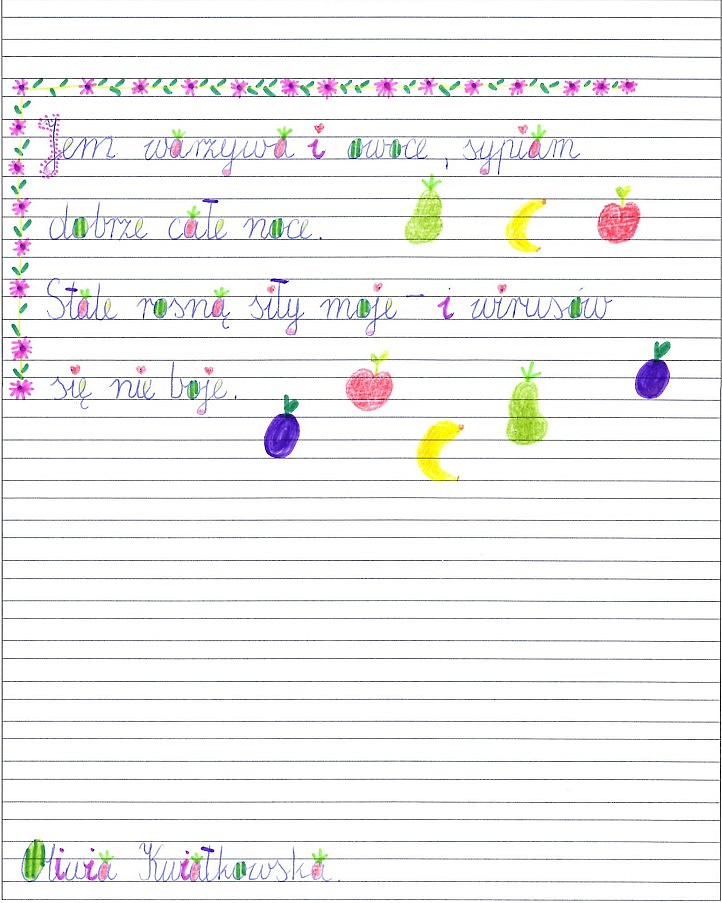 Jem warzywa i owoce, sypiam
dobrze całe noce.
Stale rosną siły moje - i wirusów
się nie boje.
Oliwia Kwiatkowska.